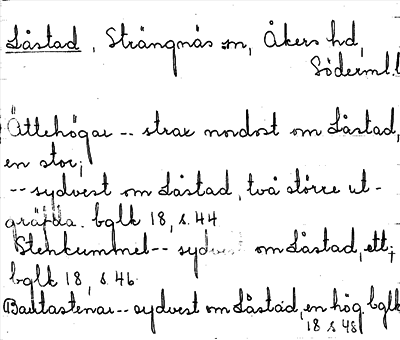 Låstad, Strängnäs sn, Åkers hd,
Söderml.l
Ättehögar -- strax nordost om Låstad,
en stor;
-- sydvest om Låstad, två större ut-
gräfda. bglk 18, s. 44
Stenkummel -- sydvest om Låstad, ett;
bglk 18, s. 46
Bautastenar -- sydvest om Låstad, en hög. bglk
18 s 48